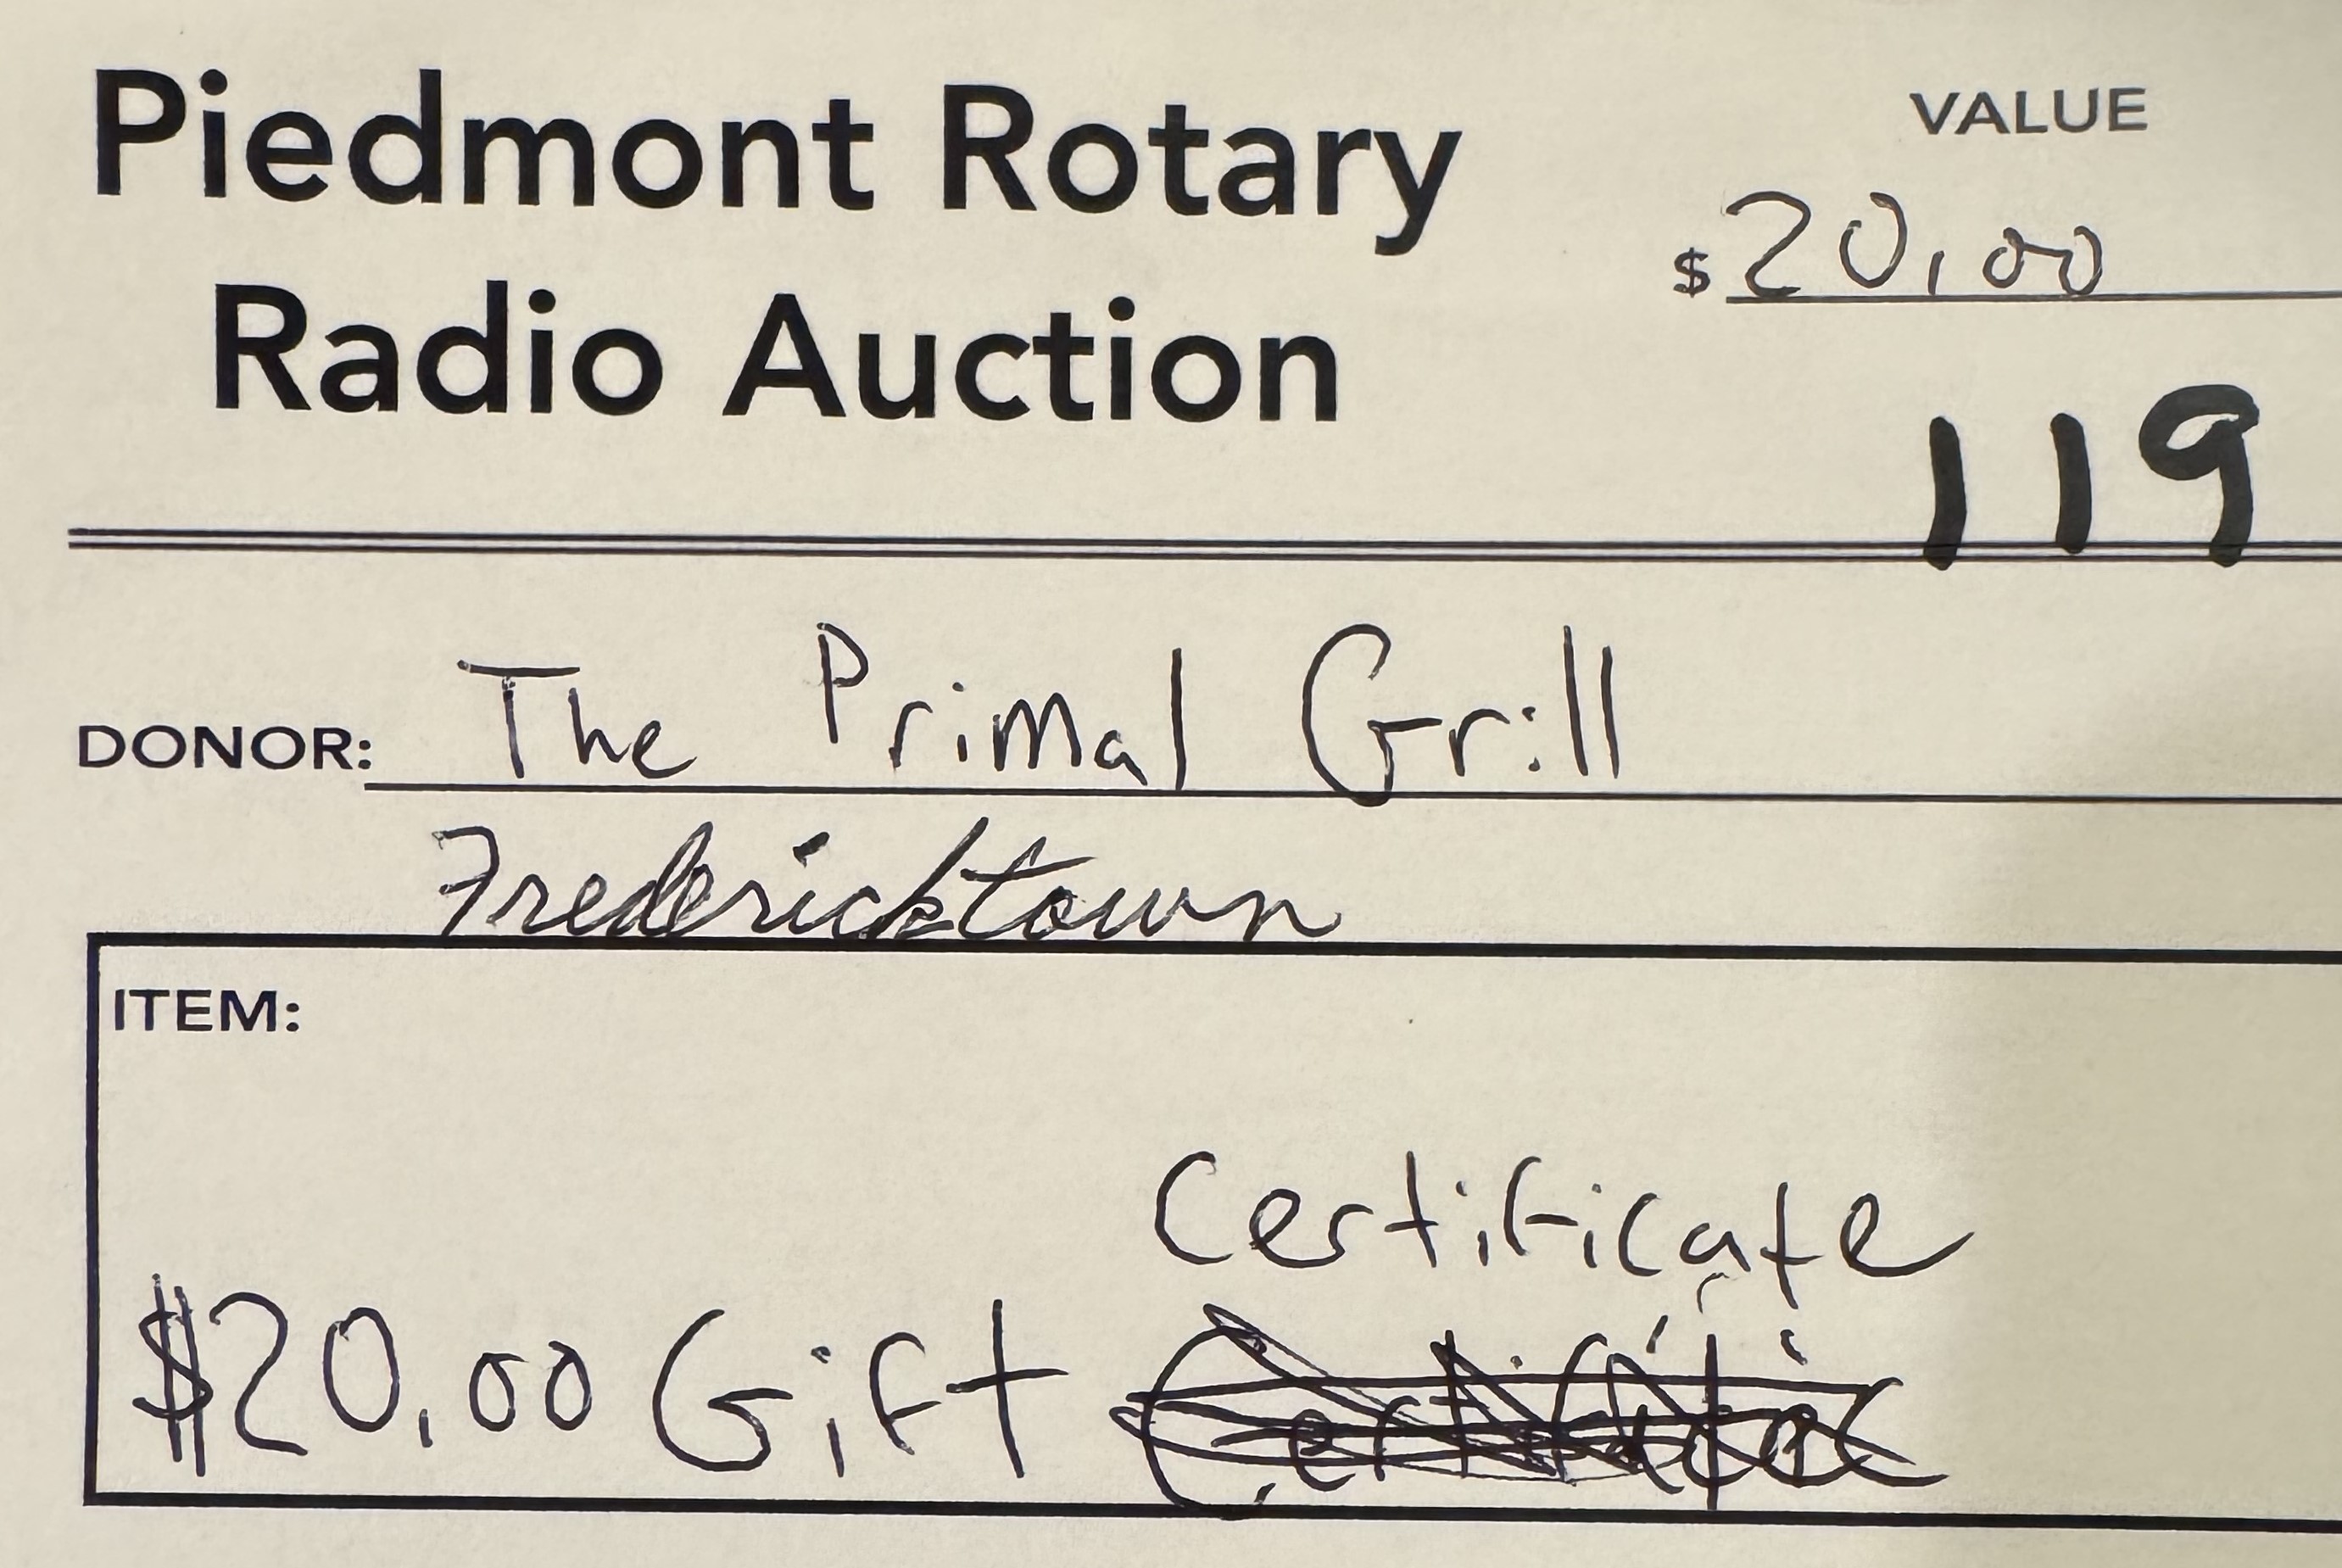 Piedmont Rotary
Radio Auction
VALUE
$20.00
119
DONOR: The Primal Grill
Fredericktown
ITEM:
Certificate
$20.00 Gift